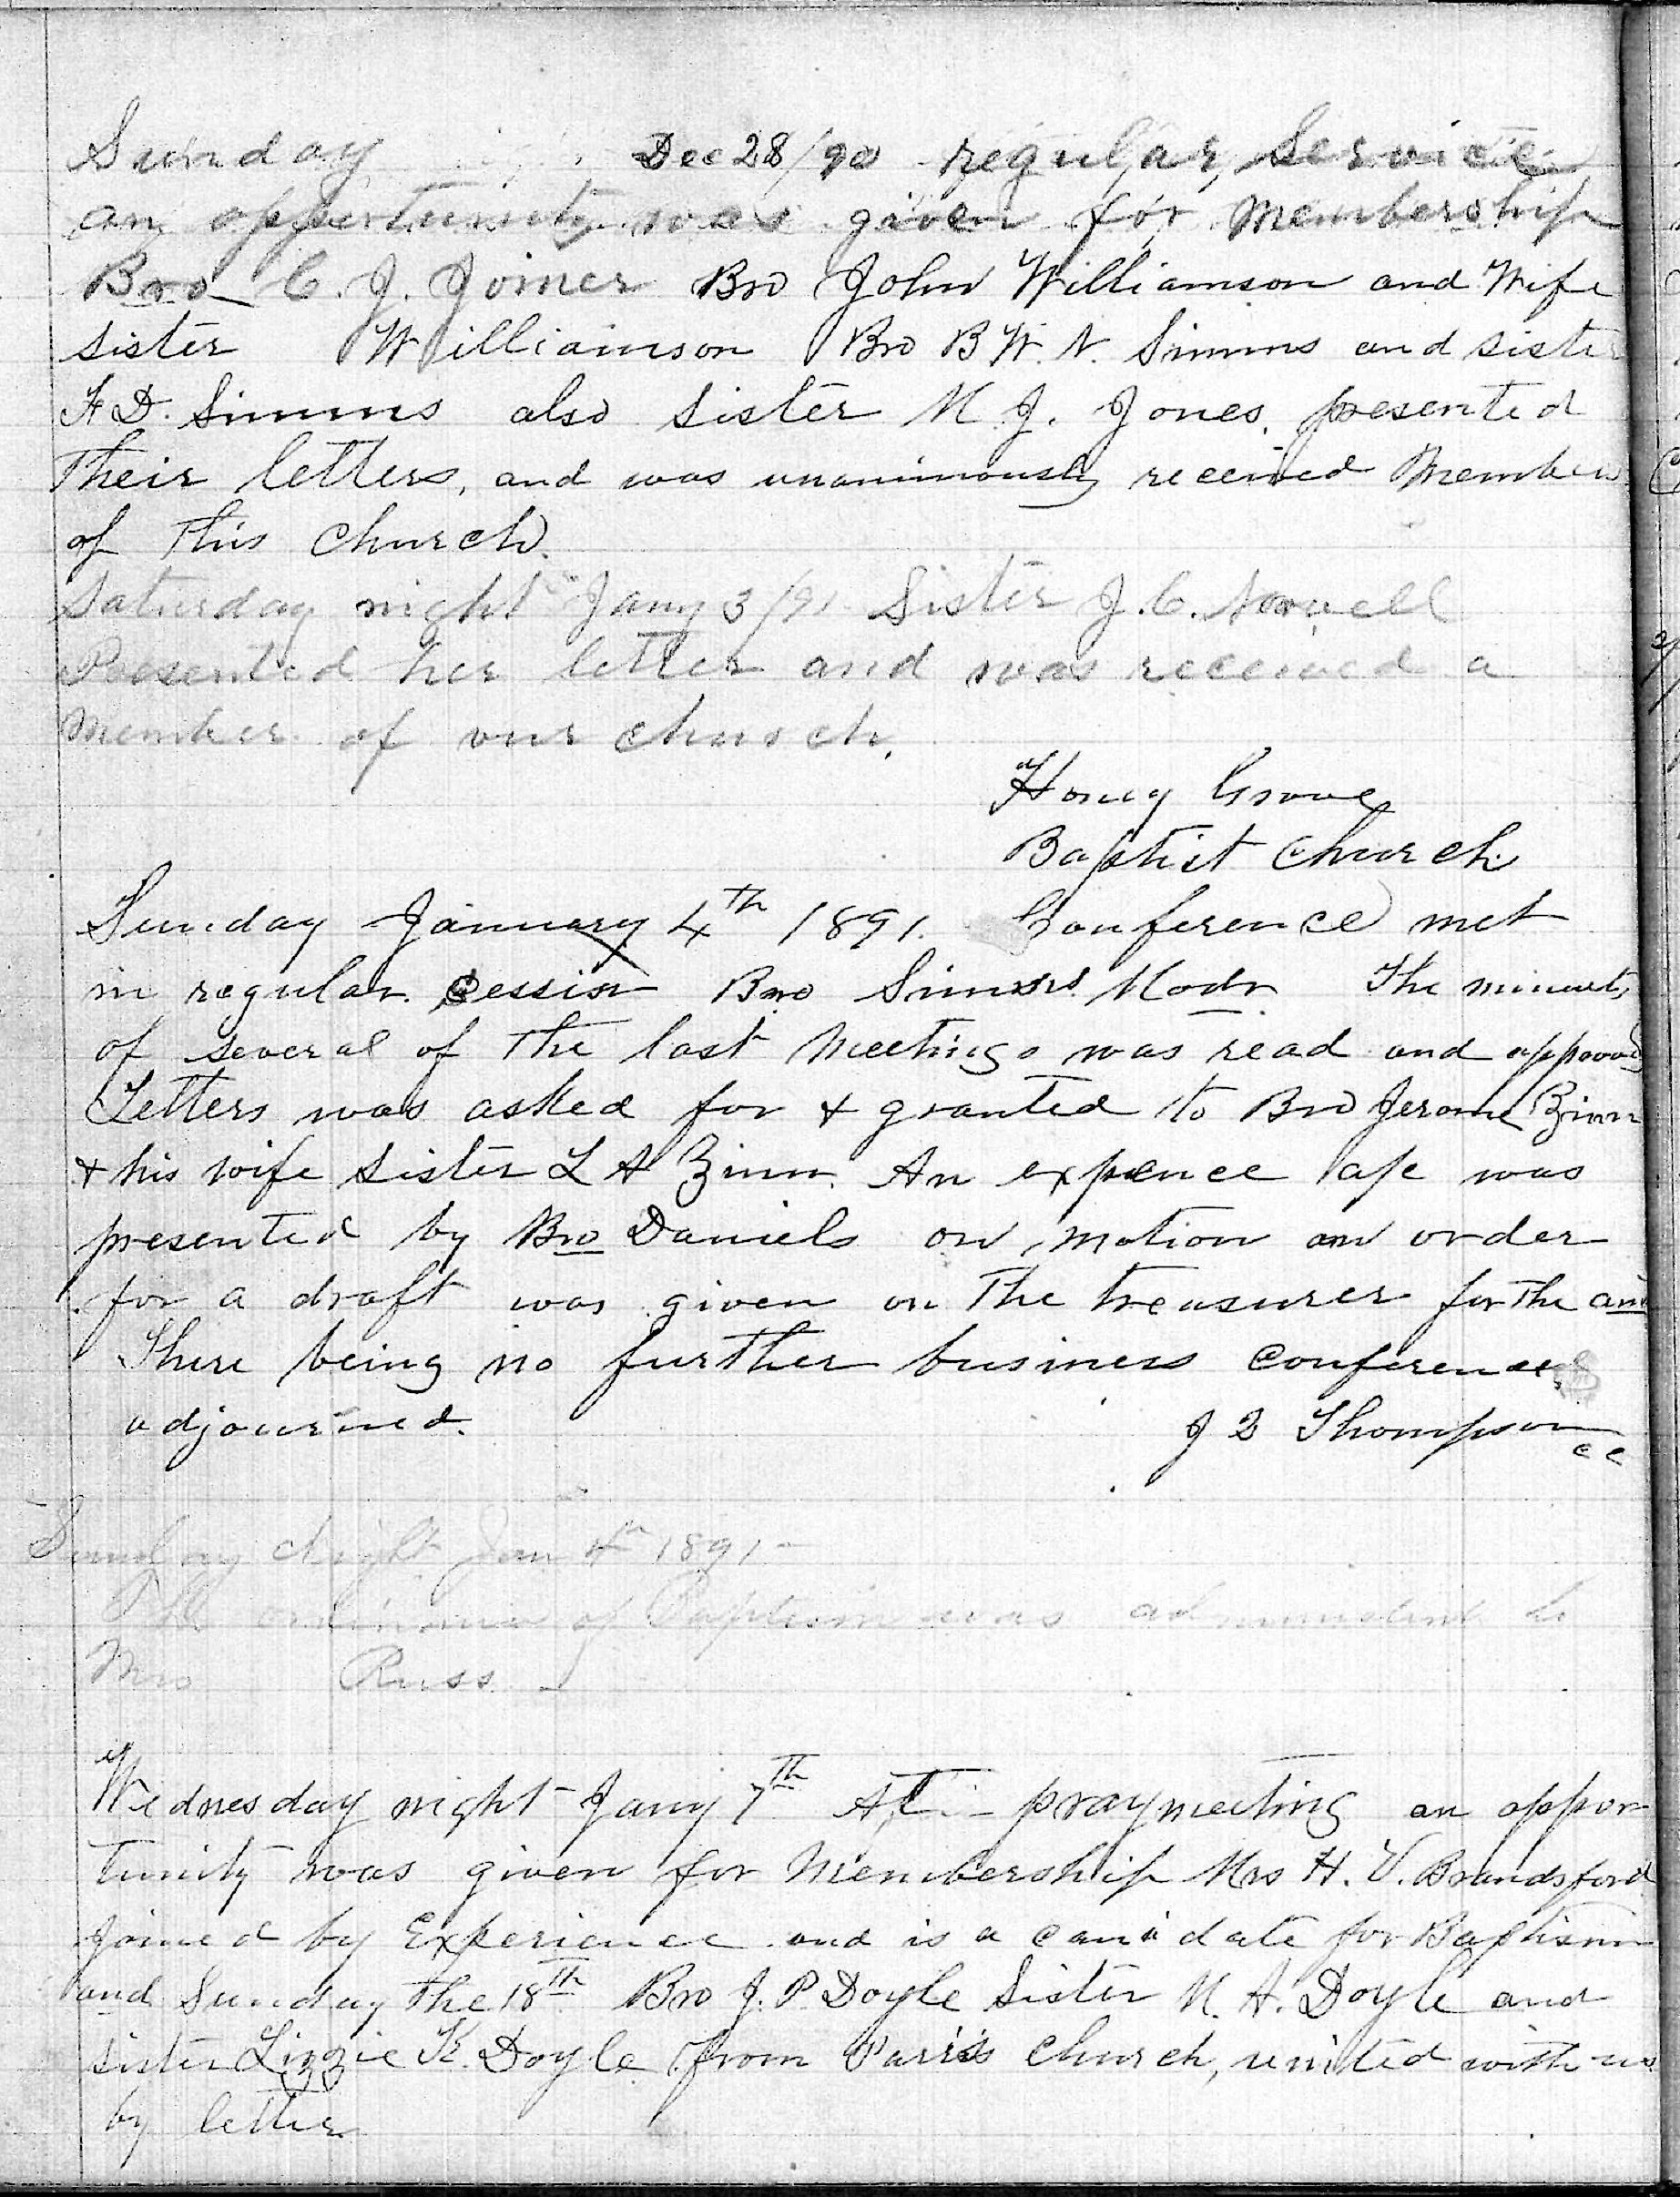 Sunday Dec 28/90 regular service
an oppertunity was given for Membership
Bro C. J. Joiner Bro John Williamson and Wife
sister Williamson Bro B W. N. Simms and sister
F D. Simms also sister M. J. Jones. presented
Their letters, and was unanimously received Members
of this Church.
Saturday night Jany 3/91 Sister J. C. Nowell
Presented her letter and was received a
Member of our church.
Honey Grove
Baptist Church
Sunday January 4th 1891. Conference met
in regular session Bro Simms Modr The minuets
of several of the last Meetings was read and approved
Letters was asked for & granted to Bro Jerome Zinn
& his wife sister L A Zinn. An expence a/c was
presented by Bro Daniels on motion an order
for a draft was given on the treasurer for the amt
There being no further business conference
adjourned. J Z Thompson
c c
Sunday night Jan 4th 1891
The ordinance of Baptism was administered to
Mrs Russ
Wednesday night Jany 7th At praymeeting an oppor
tunity was given for Membership Mrs H. V. Brandsford
joined by Experience and is a canidate for Baptism
and Sunday the 18th Bro J. P Doyle Sister M. A. Doyle and
sister Lizzie K. Doyle from Parris Church, united with us
by letter